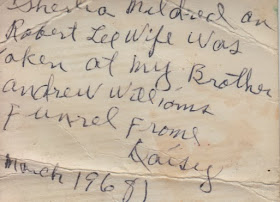 Mildred an
Robert Lee Wife was
taken at my Brother
andrew Williams
Funrel Frome
Daisy
March 1968)